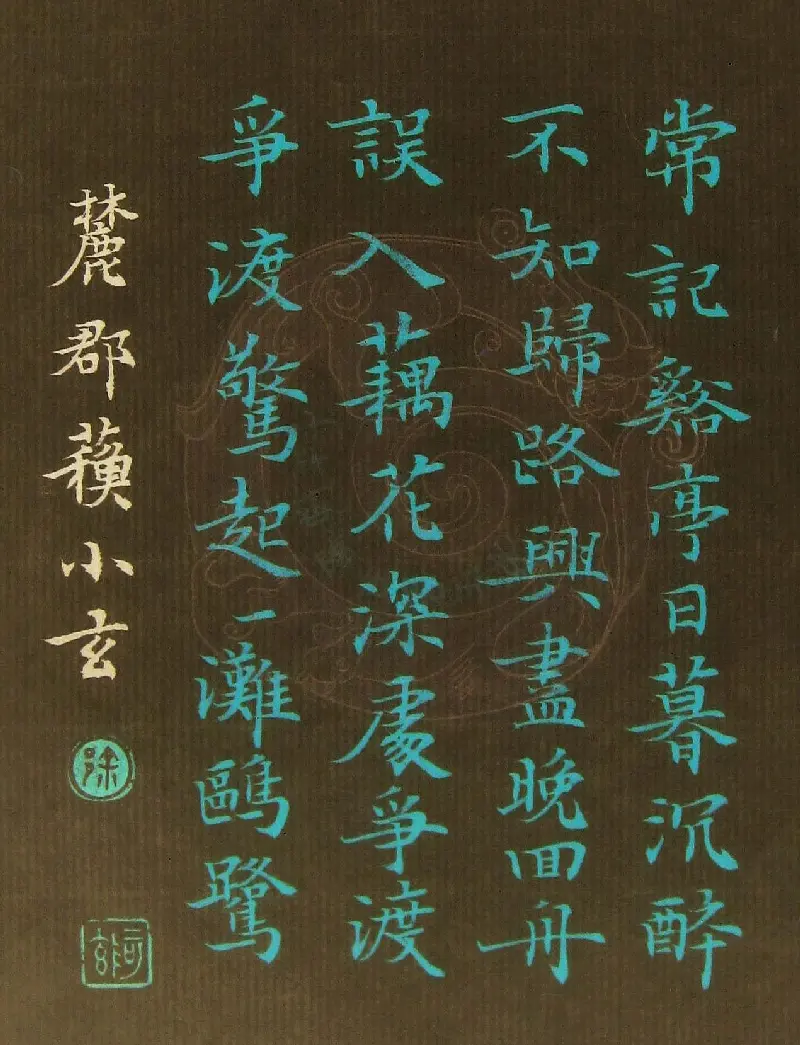 常記谿亭日暮沉醉
不知歸路興盡晚回舟
誤入藕花深處爭渡
爭渡驚起一灘鷗鷺
麓郡蘋小玄